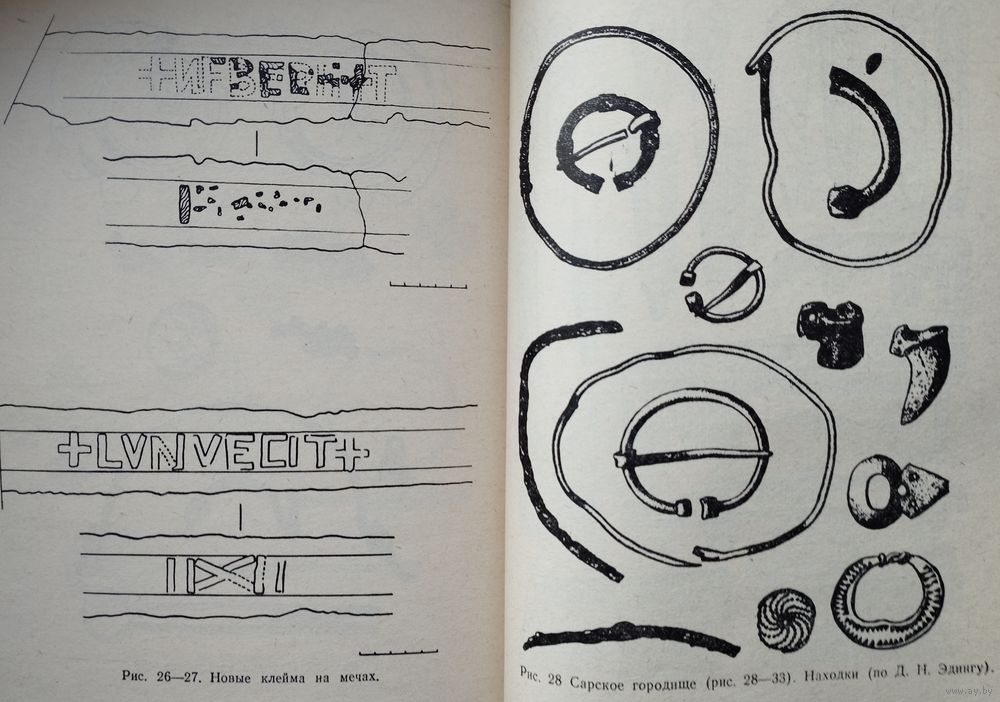 +LVNVECIT+
Рис. 26—27. Новые клейма на мечах.
Рис. 28 Сарское городище (рис. 28—33). Находки (по Д. Н. Эдингу).
www.ay.by